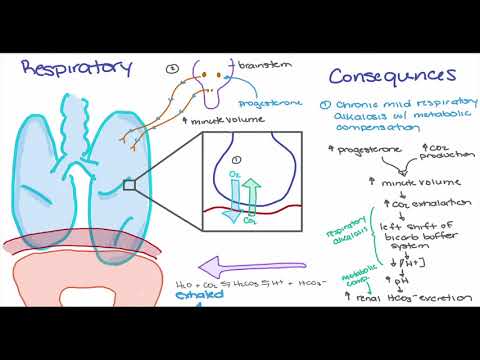 Respiratory
②
brainstem
progesterone
↑ minute volume
①
O₂
CO₂
H₂O + CO₂ ⇆ H₂CO₃ ⇆ H⁺ + HCO₃⁻
exhaled
Consequnces
① Chronic mild respiratory
alkalosis w/ metabolic
compensation
↑ progesterone
↑ CO₂
production
↑ minute volume
↑ CO₂ exhalation
respiratory
alkalosis
left shift of
bicarb buffer
system
↓ [H⁺]
metabolic
comp.
↑ pH
↑ renal HCO₃⁻ excretion